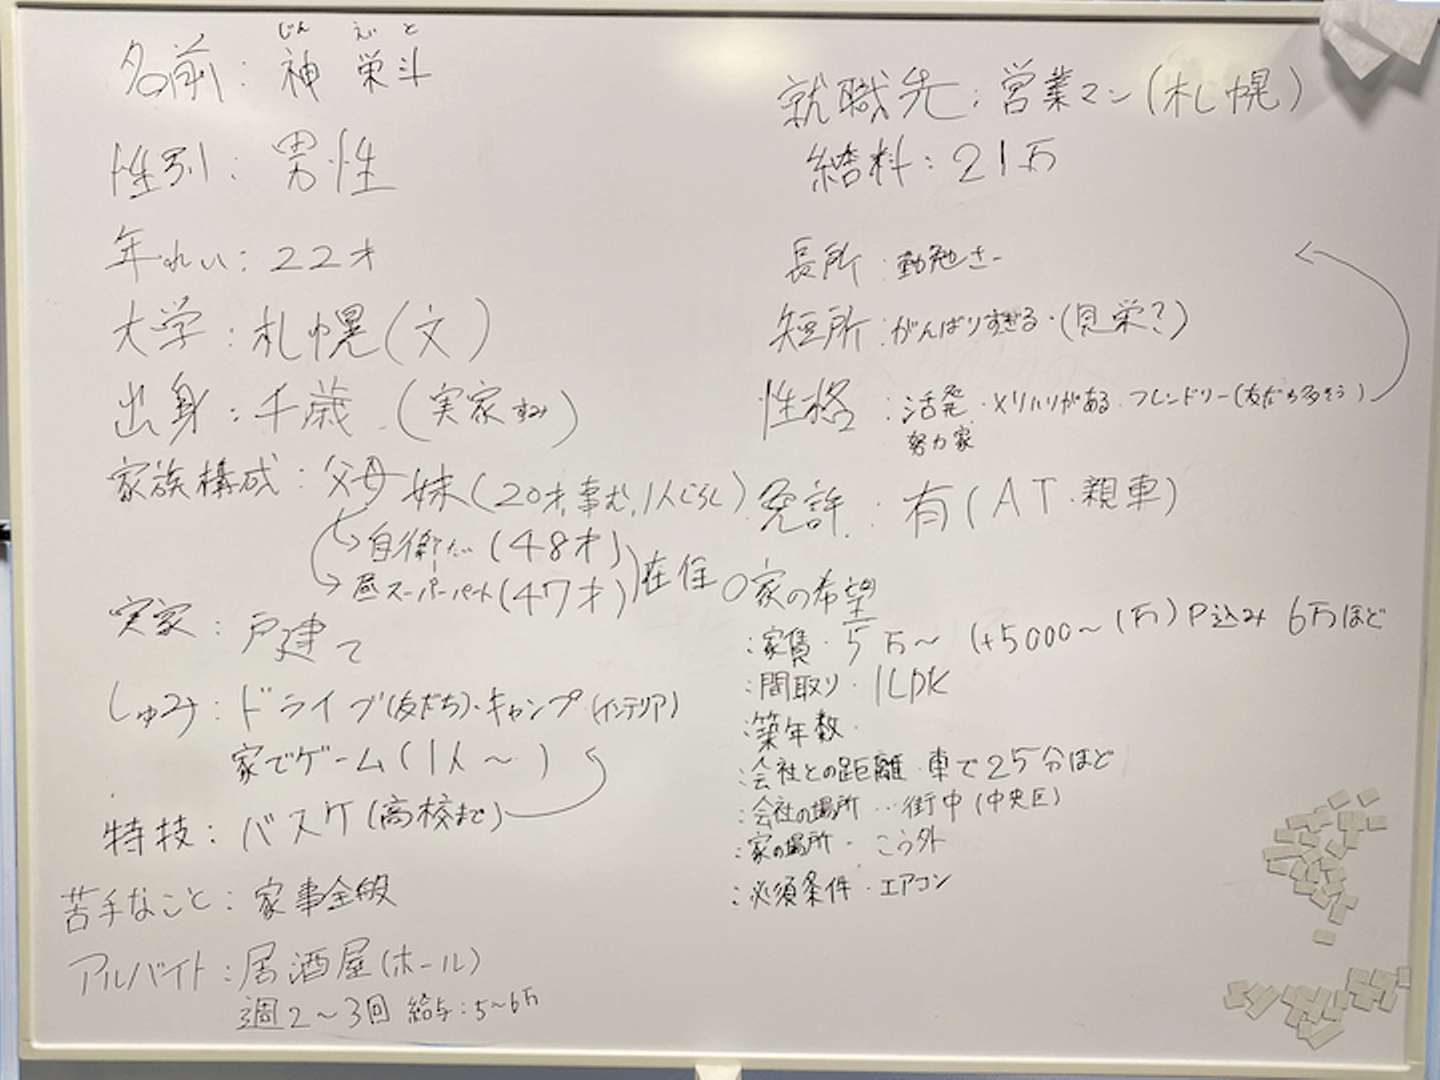 じん えい と
名前：神 栄斗
性別：男性
年れい：22才
大学：札幌(文)
出身：千歳．(実家ずみ)
家族構成：父母 妹(20才,事む,1人ぐらし)
→自衛たい(48才)
→昼スーパーパート(47才)
在住
実家：戸建て
しゅみ：ドライブ(友だち)・キャンプ・(インテリア)
家でゲーム(1人～)
特技：バスケ(高校まで)
苦手なこと：家事全般
アルバイト：居酒屋(ホール)
週2～3回 給与：5～6万
就職先：営業マン(札幌)
給料：21万
長所：勤勉さー
短所：がんばりすぎる・(見栄?)
性格：活発・メリハリがある．フレンドリー(友だち多そう)
努力家
免許：有(AT・親車)
○家の希望
：家賃・5万～ (+5000～1万)P込み 6万ほど
：間取り・1LDK
：築年数・
：会社との距離・車で25分ほど
：会社の場所…街中(中央区)
：家の場所・こう外
：必須条件・エアコン